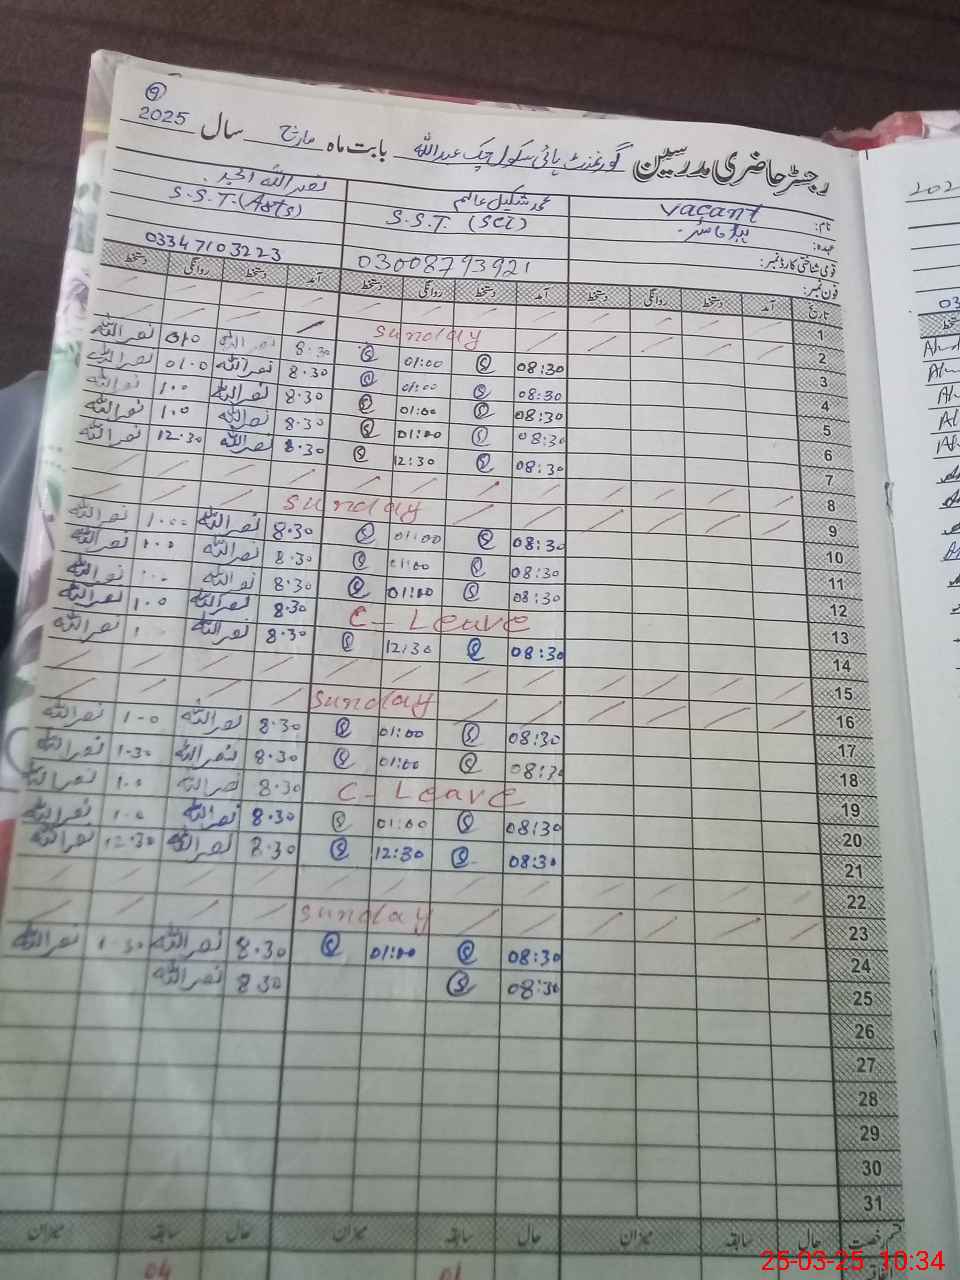 9
رجسٹر حاضری مدرسین گورنمنٹ ہائی سکول چک عبداللہ بابت ماہ مارچ سال 2025
نام: vacant محمد شکیل عالم نصر اللہ
عہدہ: ہیڈ ماسٹر S.S.T. (Sci) S.S.T. (Arts)
قومی شناختی کارڈ نمبر:
فون نمبر: 03008793921 03347103223
تاریخ آمد دستخط روانگی دستخط آمد دستخط روانگی دستخط آمد دستخط روانگی دستخط
1
2 Sunday
3 08:30 01:00 8.30 نصر اللہ 01.0 نصر اللہ
4 08:30 01:00 8.30 نصر اللہ 01.0 نصر اللہ
5 08:30 01:00 8.30 نصر اللہ 1.0 نصر اللہ
6 08:30 01:00 8.30 نصر اللہ 1.0 نصر اللہ
7 08:30 12:30 8.30 نصر اللہ 12.30 نصر اللہ
8
9 Sunday
10 08:30 01:00 8.30 نصر اللہ 1.00 نصر اللہ
11 08:30 01:00 8.30 نصر اللہ 1.0 نصر اللہ
12 08:30 01:00 8.30 نصر اللہ نصر اللہ
13 C-Leave 8.30 نصر اللہ 1.0 نصر اللہ
14 08:30 12:30 8.30 نصر اللہ نصر اللہ
15
16 Sunday
17 08:30 01:00 8.30 نصر اللہ 1.0 نصر اللہ
18 08:30 01:00 8.30 نصر اللہ 1.30 نصر اللہ
19 C-Leave 8.30 نصر اللہ 1.0 نصر اللہ
20 08:30 01:00 8.30 نصر اللہ 1.0 نصر اللہ
21 08:30 12:30 8.30 نصر اللہ 12.30 نصر اللہ
22
23 Sunday
24 08:30 01:00 8.30 نصر اللہ 1.30 نصر اللہ
25 08:30 8.30 نصر اللہ
26
27
28
29
30
31
قسم رخصت حال سابقہ میزان حال سابقہ میزان حال سابقہ میزان
01 04
25-03-25 10:34